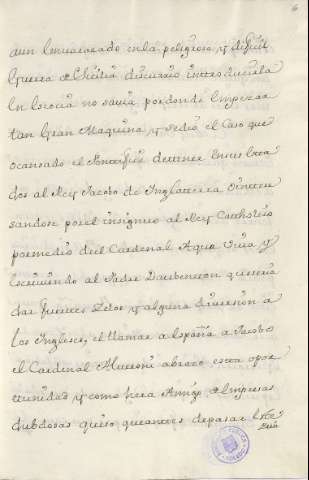 6
aun lo mucorado en la peligrosa y dificil
Guerra de Sicilia discurrio introducirla
En Escocia no savia por donde Empezar
tan Gran Maquina, y se dio el Caso que
cansado el Pontifice de tener En su
dos al Rey Jacobo de Inglaterra
sandose por el insignuo al Rey Catholico
por medio del Cardenal Aqua Viva y
Escriviendo al Padre Daubenton que seria
dar fuertes Zelos y alguna diversion a
Los Ingleses, el llamar a España a Jacobo
el Cardenal Alveroni abrazo esta opor
tunidad y como hera Amigo de Empresas
dubdosas quiso que antes de pasar